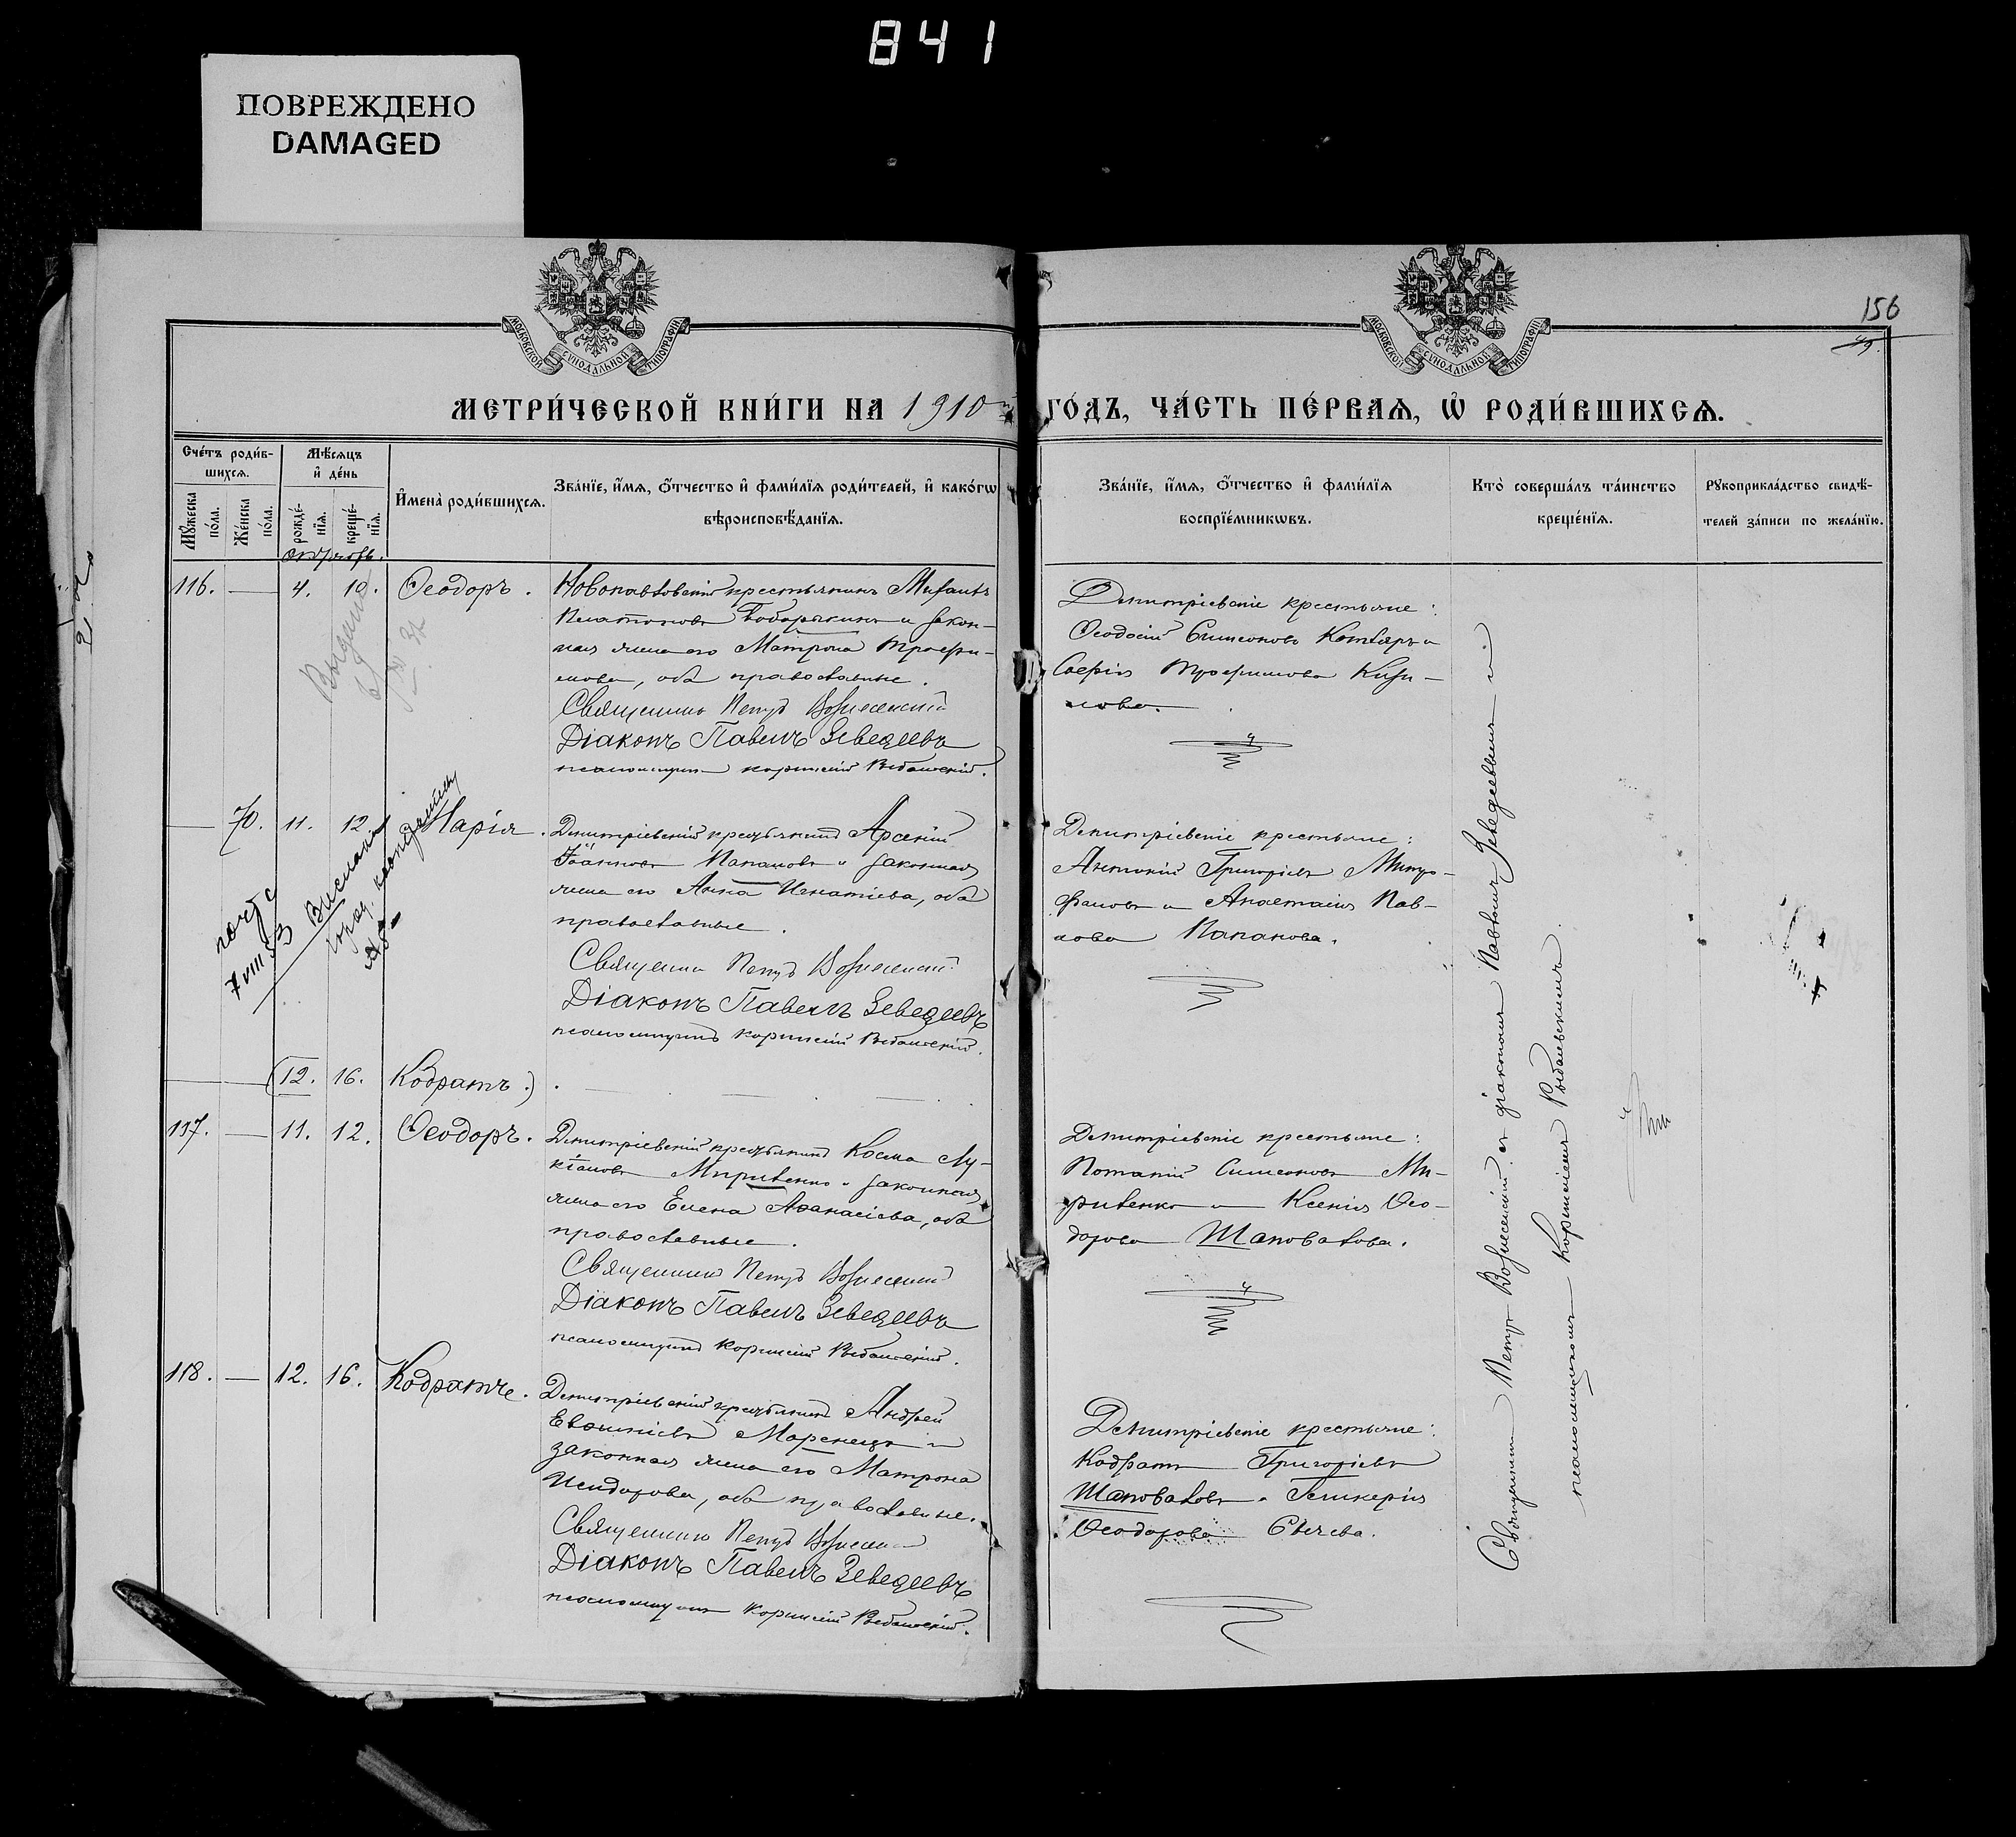 841
ПОВРЕЖДЕНО
DAMAGED
МОСКОВСКОЙ СѴНОДАЛЬНОЙ ТИПОГРАФІИ
МОСКОВСКОЙ СѴНОДАЛЬНОЙ ТИПОГРАФІИ
156
МЕТРИ́ЧЕСКОЙ КНИ́ГИ НА 1910 ГО́ДЪ, ЧА́СТЬ ПЕ́РВАѦ, Ѡ҆ РОДИ́ВШИХСѦ.
Сче́тъ роди́в-
шихсѧ.
Мꙋ́жеска по́ла.
Же́нска по́ла.
Мѣ́сѧцъ
и҆ де́нь
рожде́-
нїѧ.
креще́-
нїѧ.
И҆мена̀ роди́вшихсѧ.
Зва́нїе, и҆́мѧ, ѻ҆́тчество и҆ фами́лїѧ роди́телей, и҆ како́гѡ
вѣроисповѣ́данїѧ.
Зва́нїе, и҆́мѧ, ѻ҆́тчество и҆ фами́лїѧ
воспрїе́мникѡвъ.
Кто̀ соверша́лъ та́инство
креще́нїѧ.
Рꙋкоприкла́дство свидѣ́-
телей за́писи по жела́нїю.
116. — 4. 10. Ѳеодоръ.
Новопавловскій крестьянинъ Михаилъ
Платоновъ Бобырькинъ и закон-
ная жена его Матрона Трофи-
мова, оба православные.
Священникъ Петръ Вознесенскій
Діаконъ Павелъ Зеведеевъ
псаломщикъ Корнилій Рыбальскій.
Димитріевскіе крестьяне:
Ѳеодосій Симеоновъ Котляръ и
Софія Трофимова Кизи-
лова.
— 70. 11. 12. Марія.
Димитріевскій крестьянинъ Арсеній
Іоанновъ Папановъ и законная
жена его Анна Игнатіева, оба
православные.
Священникъ Петръ Вознесенскій
Діаконъ Павелъ Зеведеевъ
псаломщикъ Корнилій Рыбальскій.
Димитріевскіе крестьяне:
Антоній Григорьевъ Митро-
фановъ и Анастасія Пав-
лова Папанова.
7 VIII 53
(12. 16. Кодратъ.)
117. — 11. 12. Ѳеодоръ.
Димитріевскій крестьянинъ Косма Лу-
кіановъ Мирненко и законная
жена его Елена Аѳанасіева, оба
православные.
Священникъ Петръ Вознесенскій
Діаконъ Павелъ Зеведеевъ
псаломщикъ Корнилій Рыбальскій.
Димитріевскіе крестьяне:
Потапій Симеоновъ
и Ксенія Ѳео-
дорова Шаповалова.
118. — 12. 16. Кодратъ.
Димитріевскій крестьянинъ Андрей
Евѳиміевъ Маренецъ и
законная жена его Матрона
Исидорова, оба православные.
Священникъ Петръ Вознесенскій
Діаконъ Павелъ Зеведеевъ
псаломщикъ Корнилій Рыбальскій.
Димитріевскіе крестьяне:
Кодратъ Григорьевъ
Шаповаловъ и Гликерія
Ѳеодорова
Священникъ Петръ Вознесенскій съ діакономъ Павломъ Зеведеевымъ и
псаломщикомъ Корниліемъ Рыбальскимъ.